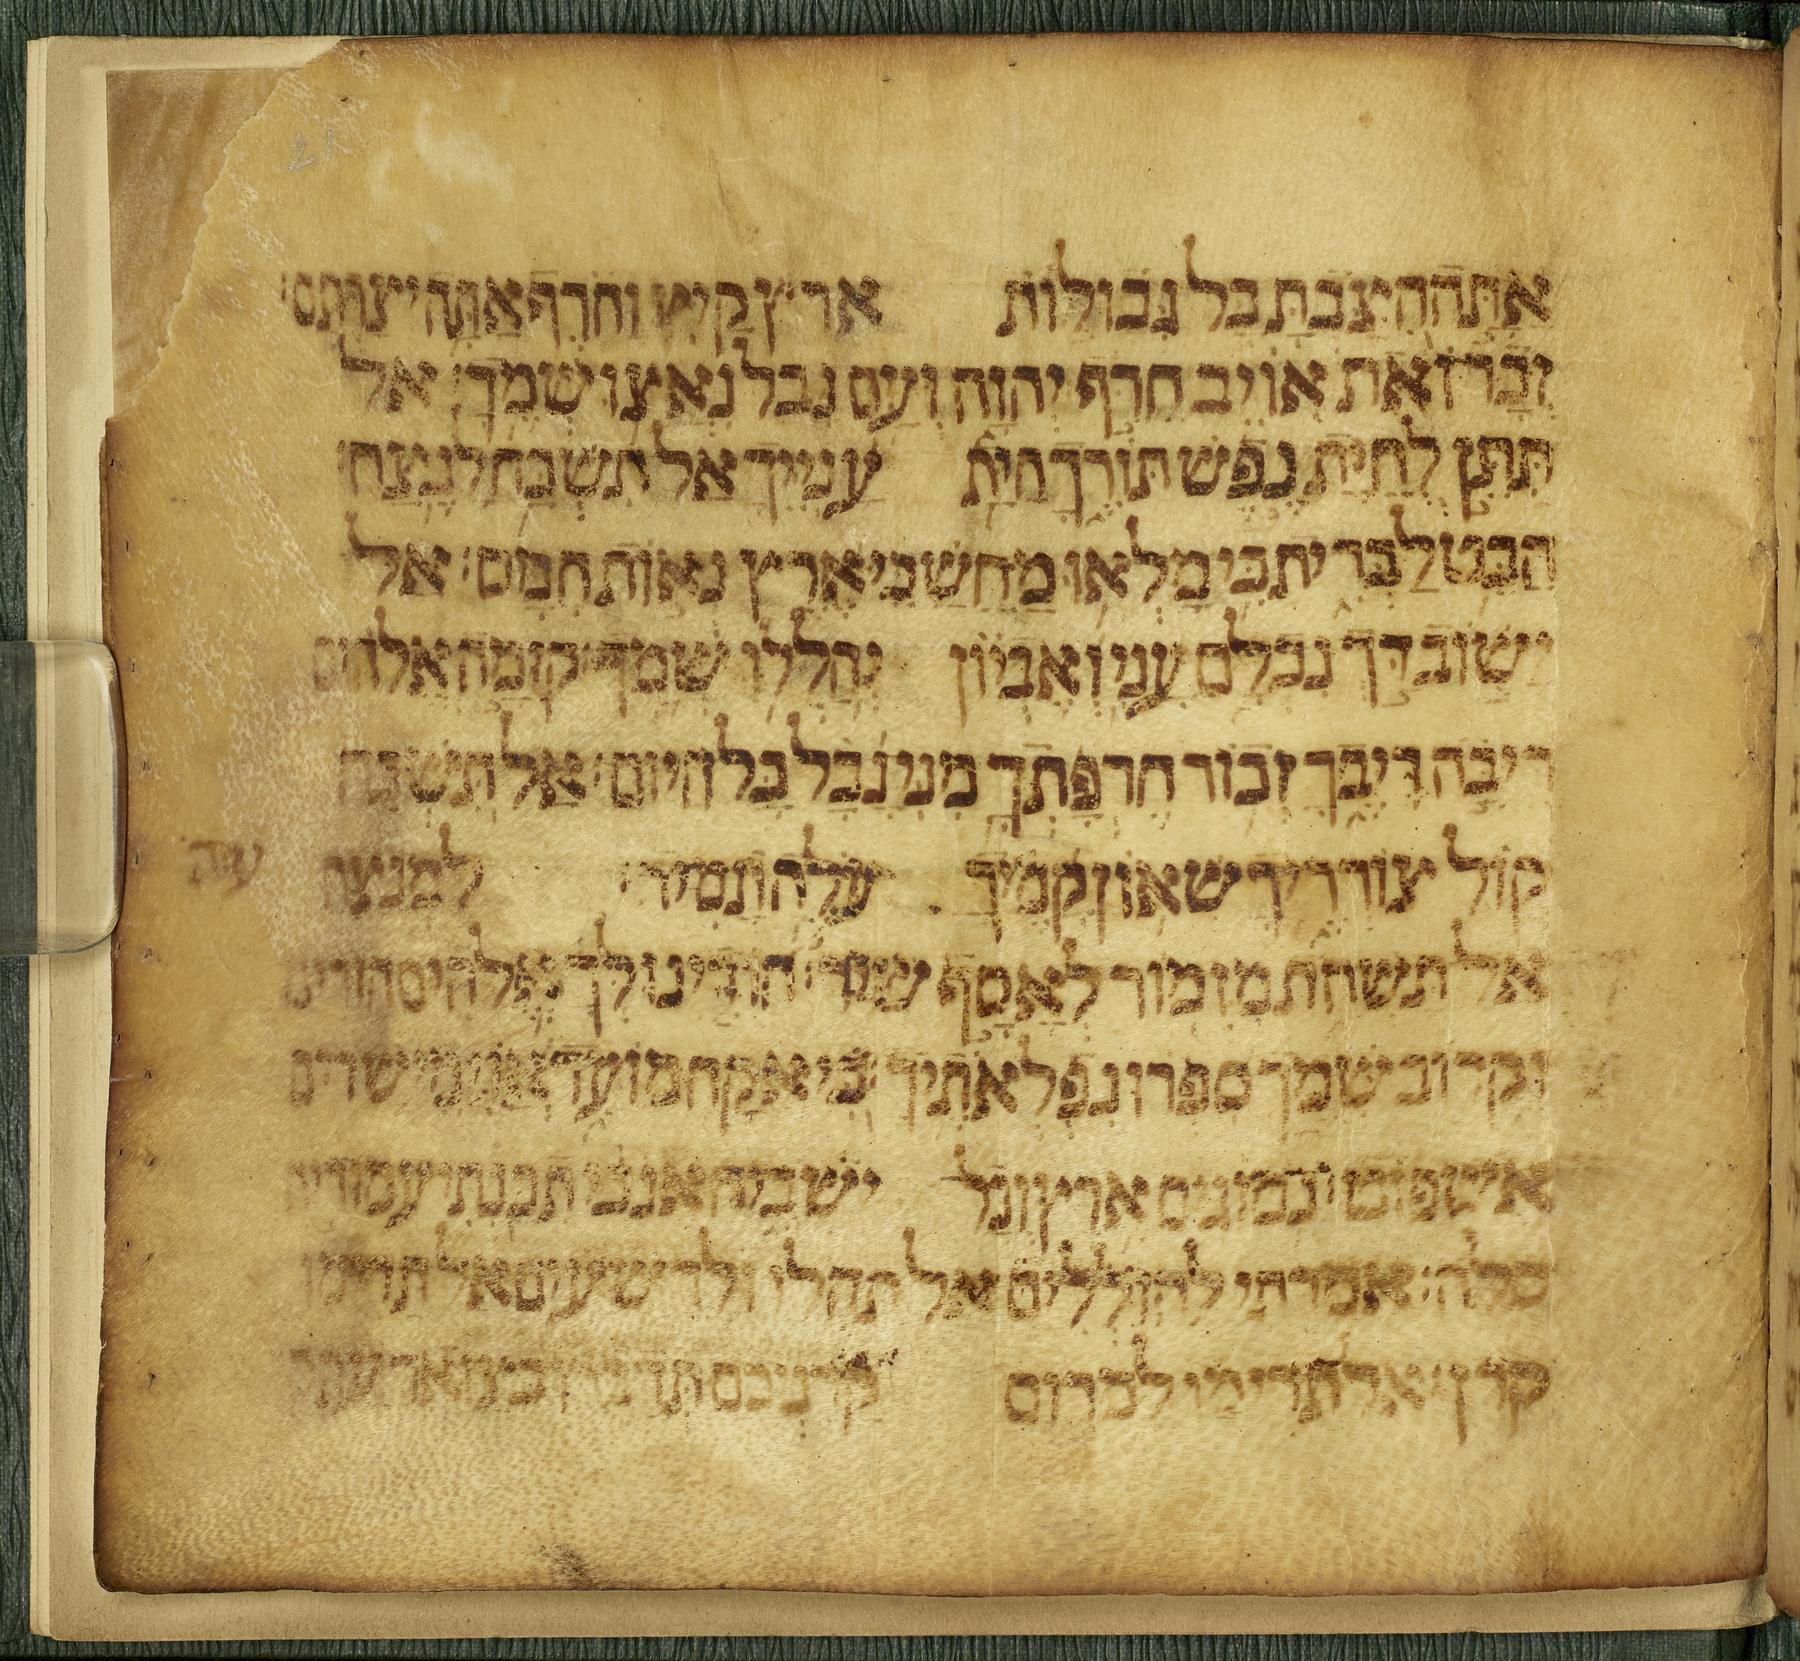 אַתָּה הִצַּבְתָּ כָּל גְּבוּלוֹת ארץ קַיִץ וָחֹרֶף אַתָּה יצרתם
זְכָר זֹאת אוֹיֵב חֵרֵף יְהוָה וְעַם נָבָל נִאֲצוּ שְׁמֶךָ׃ אל
תִּתֵּן לְחַיַּת נֶפֶשׁ תּוֹרֶךָ חַיַּת עֲנִיֶּיךָ אַל תִּשְׁכַּח לָנֶצַח׃
הַבֵּט לַבְּרִית כִּי מָלְאוּ מַחֲשַׁכֵּי אֶרֶץ נְאוֹת חָמָס׃ אל
ישׁוֹב דַּךְ נִכְלָם עָנִי וְאֶבְיוֹן יְהַלְלוּ שְׁמֶךָ׃ קוּמָה אֱלֹהִים
רִיבָה רִיבֶךָ זְכוֹר חֶרְפָּתְךָ מִנִּי נָבָל כָּל הַיּוֹם׃ אַל תִּשְׁכַּח
קוֹל צוֹרְרֶיךָ שְׁאוֹן קָמֶיךָ עֹלֶה תָמִיד׃ למנצח עה
אל תַּשְׁחֵת מִזְמוֹר לְאָסָף שִׁיר׃ הוֹדִינוּ לְּךָ אֱלֹהִים הודינו
וְקָרוֹב שְׁמֶךָ סִפְּרוּ נִפְלְאֹתֶיךָ׃ כִּי אֶקַּח מוֹעֵד אֲנִי מישרים
אשפוט׃ נמוגים ארץ וכל ישביה אנכי תכנתי עמודיה
סלה׃ אמרתי להוללים אל תהלו ולרשעים אל תרימו
קרן׃ אל תרימו למרום קרנכם